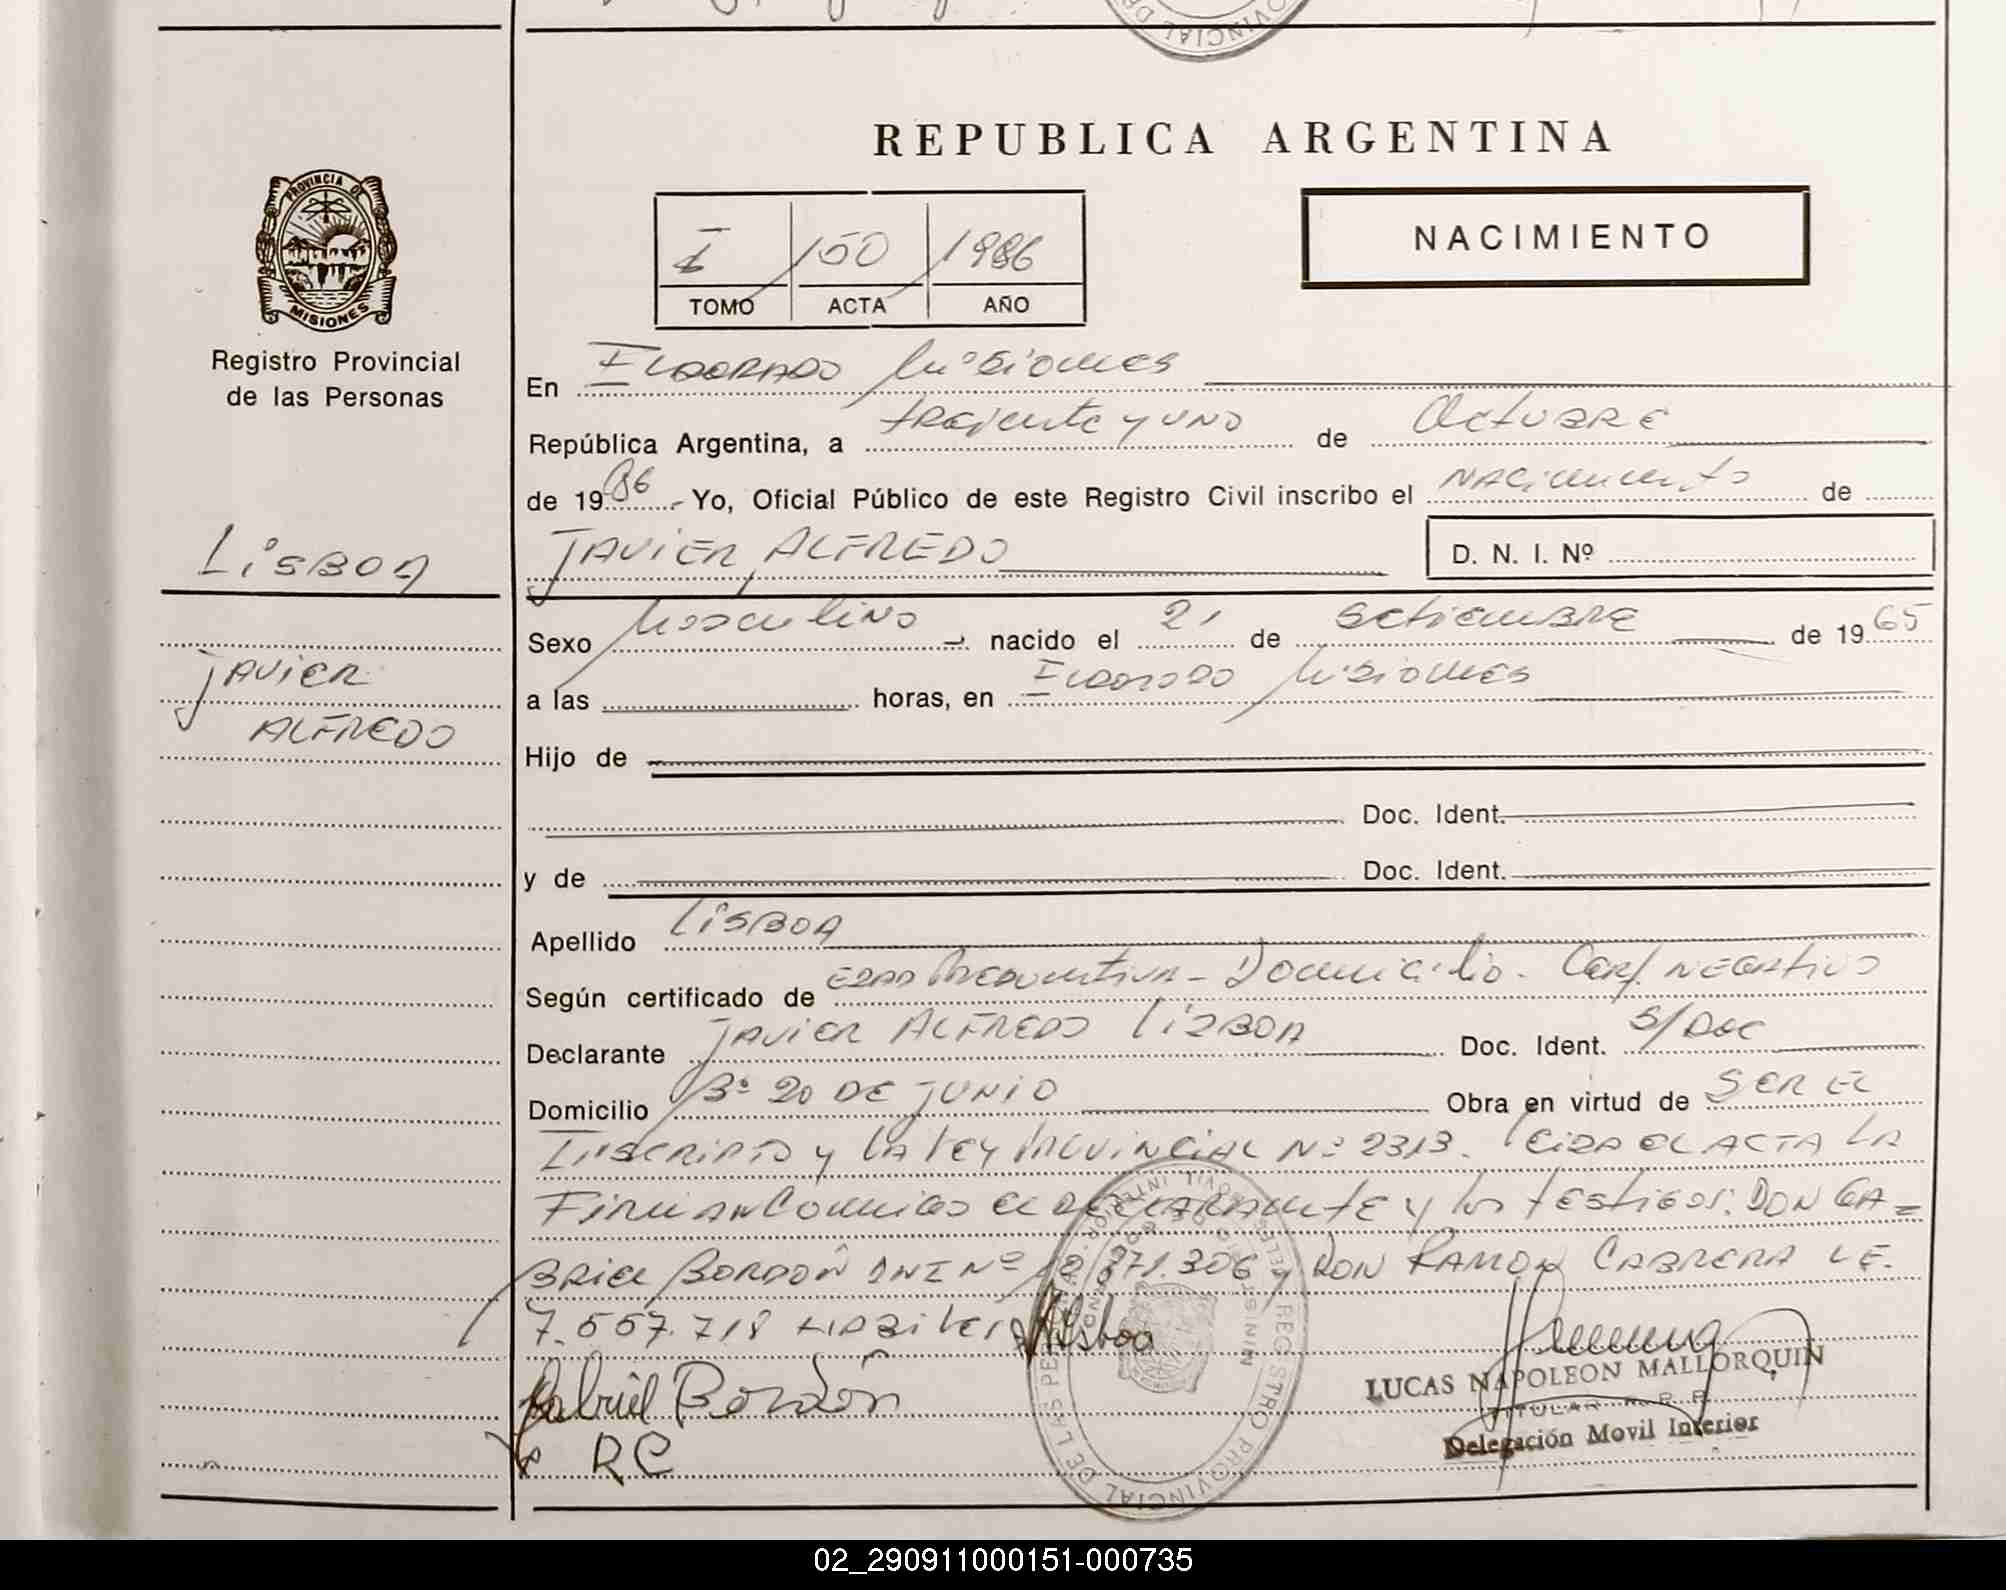 REPUBLICA ARGENTINA
PROVINCIA DE
MISIONES
Registro Provincial
de las Personas
I 150 1986
TOMO ACTA AÑO
NACIMIENTO
En ELDORADO Misiones
República Argentina, a treinta y uno de Octubre
de 1986.- Yo, Oficial Público de este Registro Civil inscribo el Nacimiento de
LisBOA
JAViER ALFREDO D. N. I. Nº
JAViER
ALFREDO
Sexo Masculino nacido el 21 de Setiembre de 1965
a las horas, en Eldorado Misiones
Hijo de
Doc. Ident.
y de Doc. Ident.
Apellido LisBOA
Según certificado de EDAD Presuntiva - Domicilio - Cert. NEGATIVO
Declarante JAViER ALFREDO LisBOA Doc. Ident. S/Doc
Domicilio Bº 20 DE JUNIO Obra en virtud de SER EL
INSCRIPTO y LA LEY PROViNCiAL Nº 2313. LEiDA EL ACTA LA
FIRMAN CONMIGO EL DECLARANTE y los tEStigos: DON GA=
BRIEL BORDÓN DNI Nº 12.971.306 y DON RAMON CABRERA LE.
7.557.718 HABiLES
Lisboa
Gabriel Bordón
RC
LUCAS NAPOLEON MALLORQUIN
TITULAR R. P.
Delegación Movil Interior
REGISTRO PROVINCIAL DE LAS PERSONAS
02_290911000151-000735